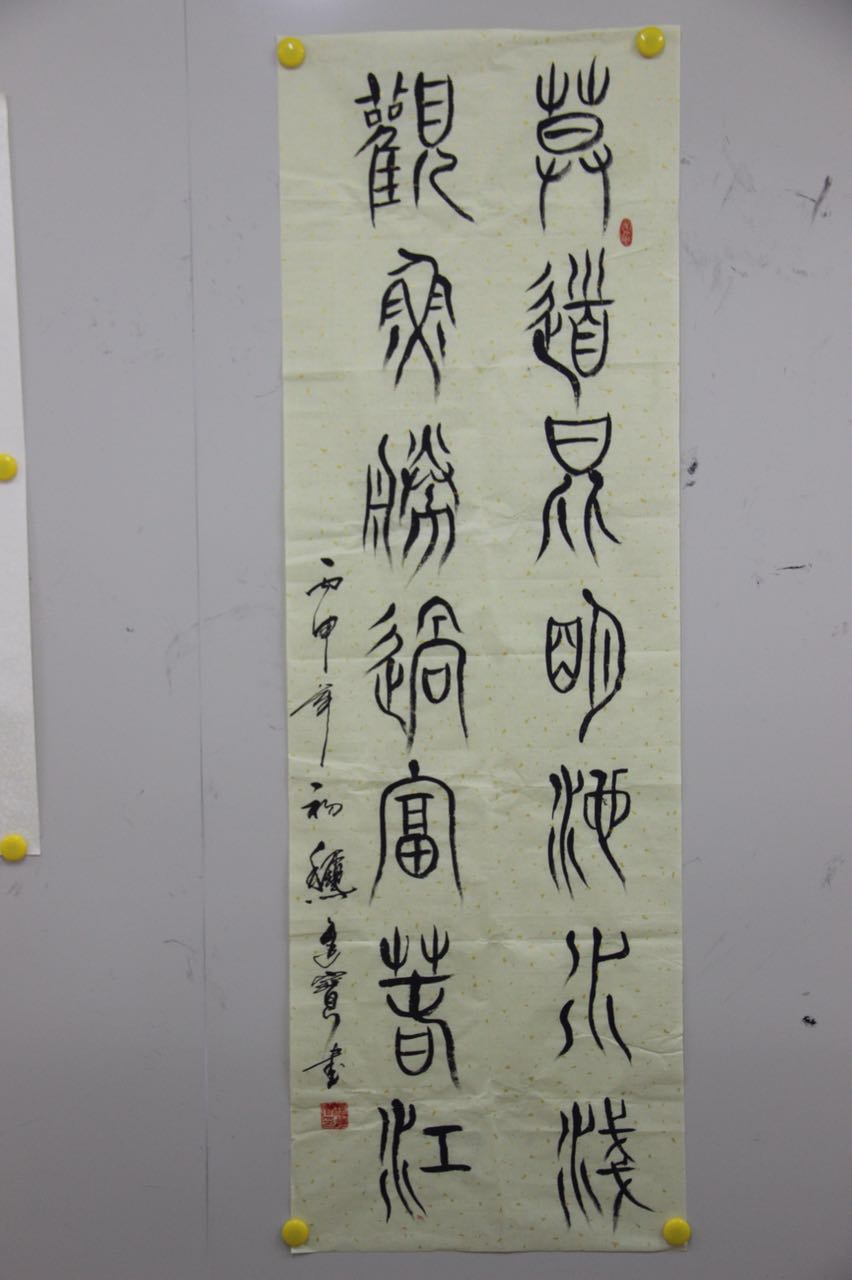 莫道昆明池水淺
觀魚勝過富春江
丙申年初龝寶書